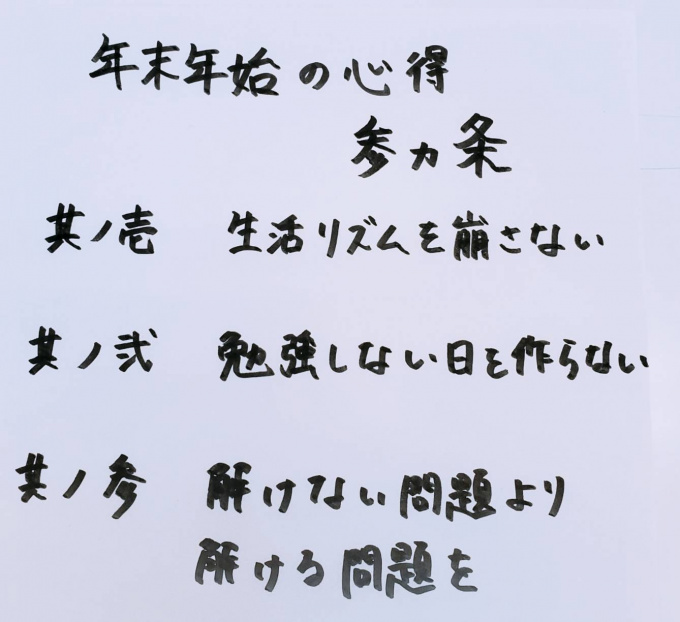 年末年始の心得
参カ条
其ノ壱 生活リズムを崩さない
其ノ弐 勉強しない日を作らない
其ノ参 解けない問題より
解ける問題を